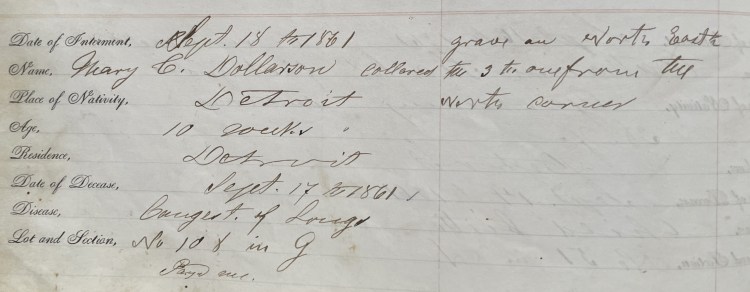 Date of Interment, Sept. 18 th 1861 grave on North Easth
Name, Mary C. Dollarson collered the 3 th one from the
Place of Nativity, Detroit North corner
Age, 10 weeks
Residence, Detroit
Date of Decease, Sept. 17 th 1861
Disease, Congest. of Longs
Lot and Section, No 108 in G